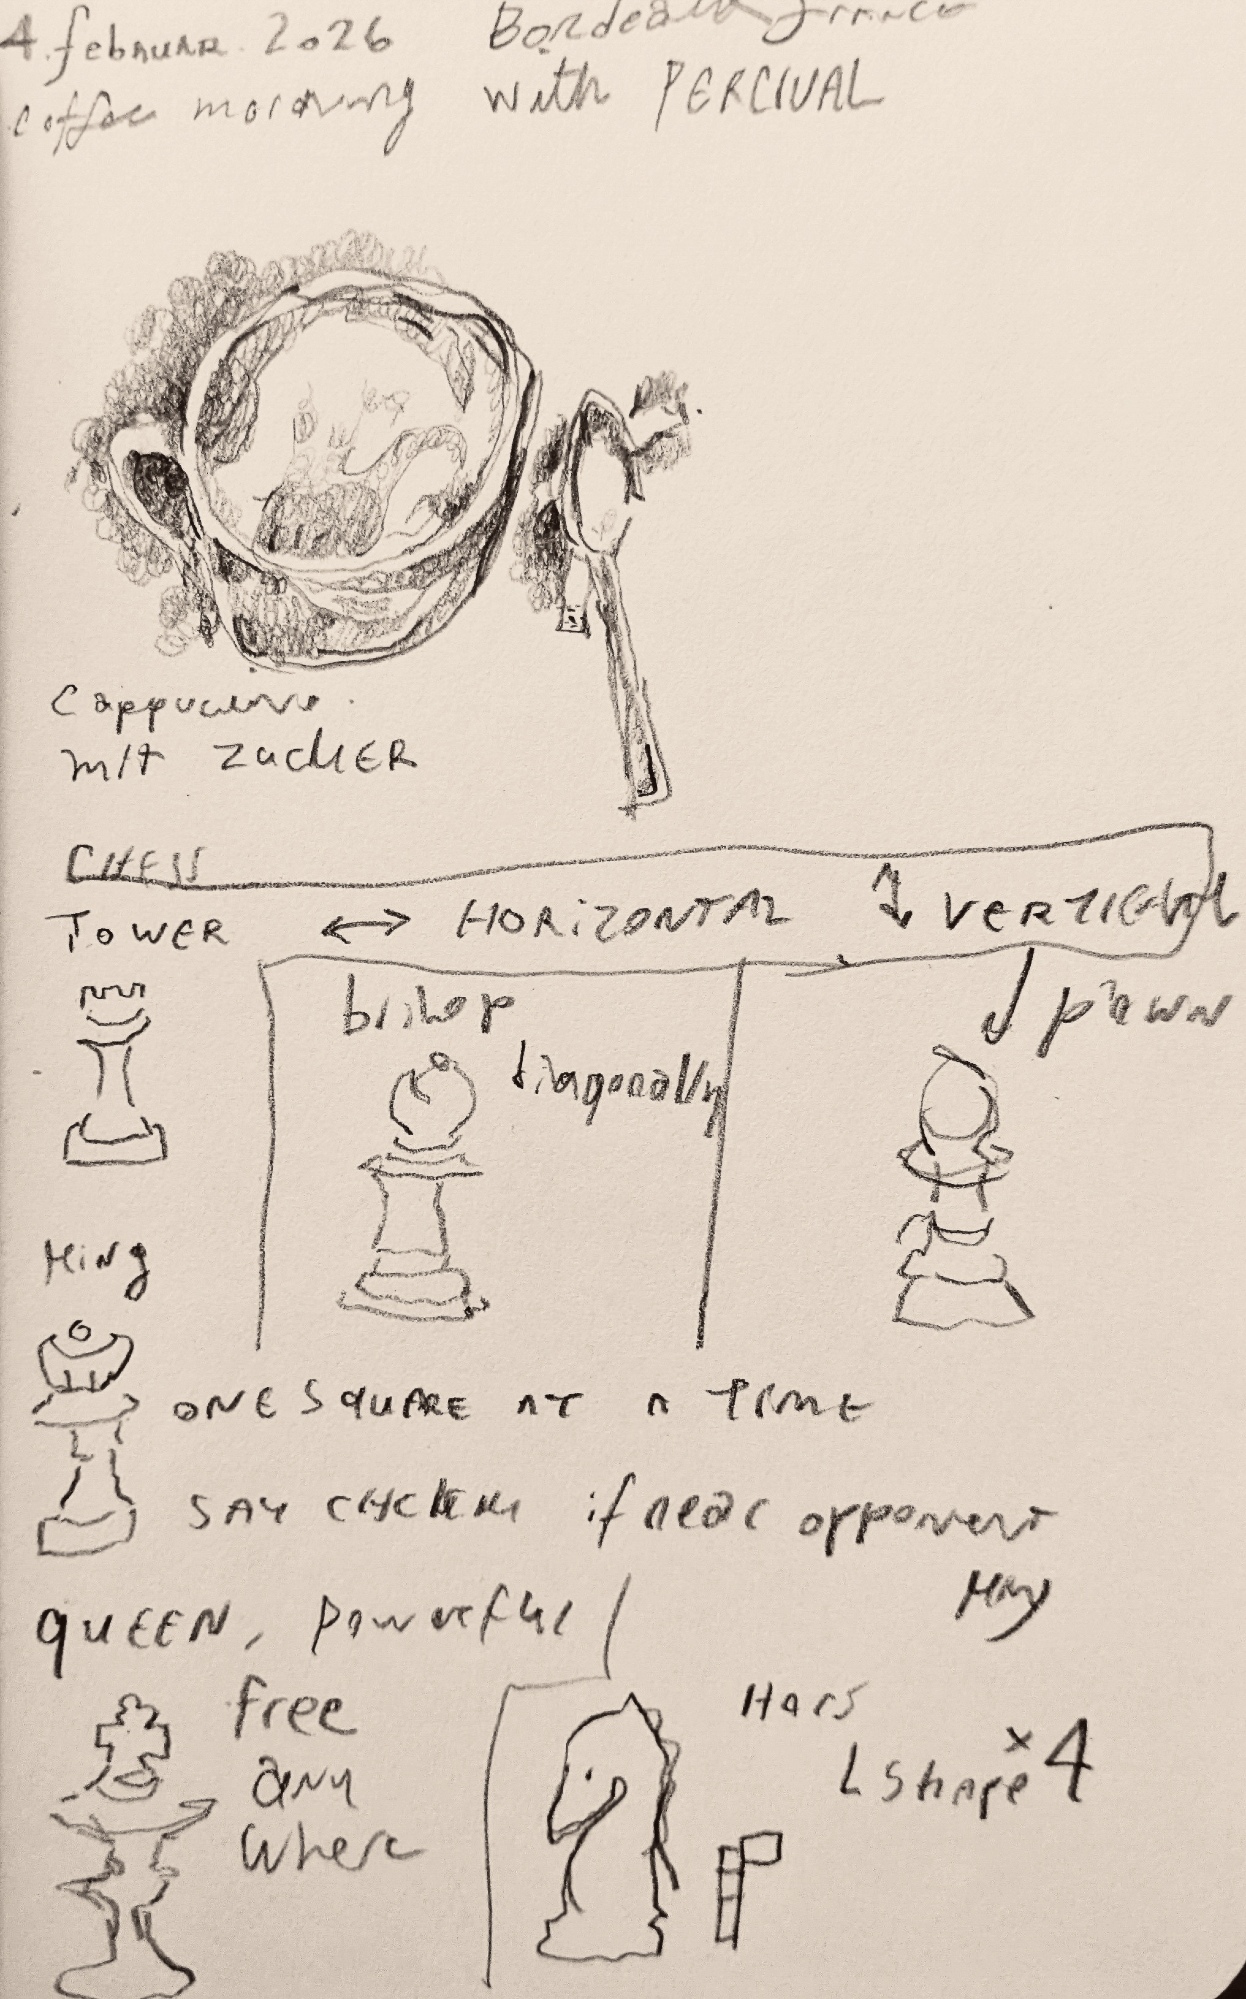 4. februar. 2026 Bordeaux france
coffee morning with PERCIVAL
Cappuccino.
mit ZUCKER
CHESS
TOWER ↔ HORIZONTAL ↕ VERTICAL
bishop
diagonally
pawn
King
ONE SQUARE AT A TIME
SAY if near opponent
King
QUEEN, Powerful
free
any
where
Hors
L Shape ×4